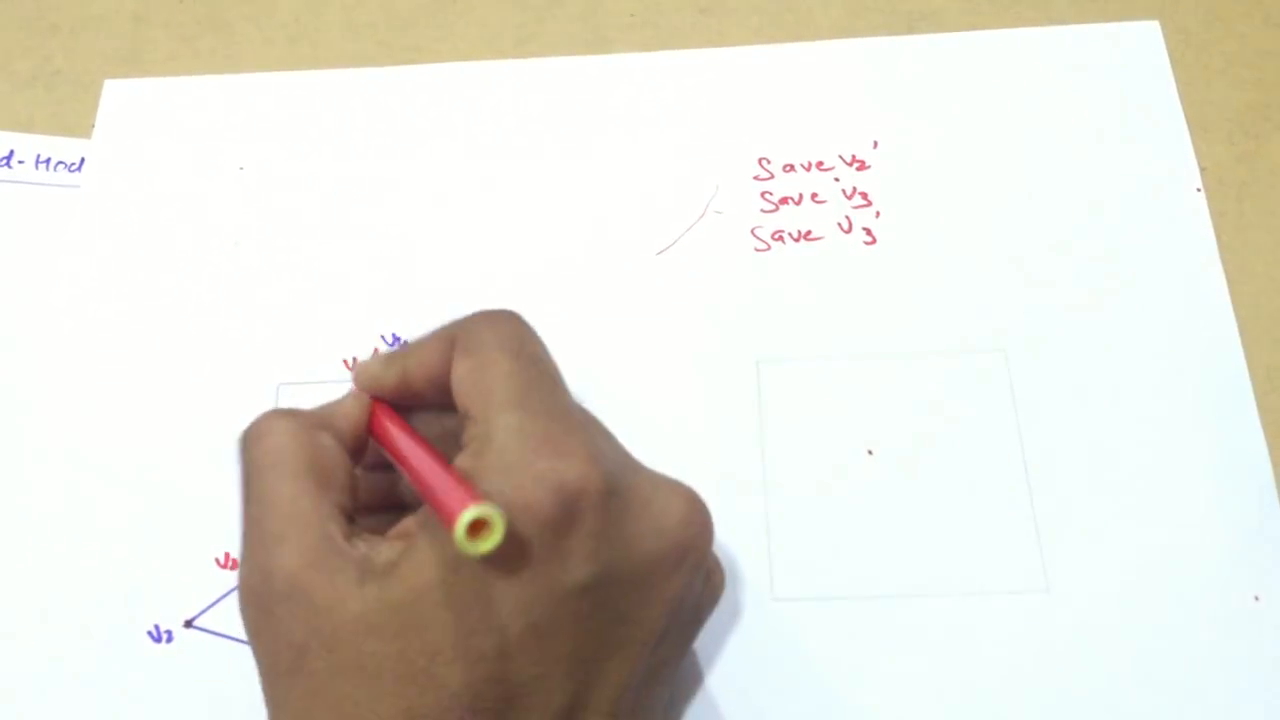 d-Hod
Save V2'
Save V3
Save V3'
V3
V2